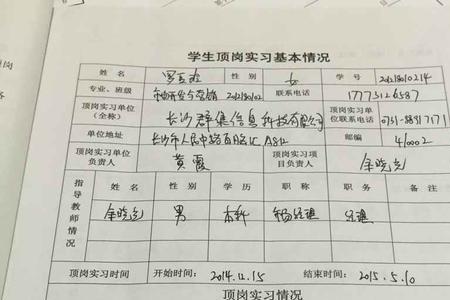 学生顶岗实习基本情况
姓名 性别 女 学号 201218010214
专业、班级 2012180102 联系电话 17775126587
顶岗实习单位（全称） 长沙群集信息科技有限公司 顶岗实习单位联系电话 0731-88917171
单位地址 长沙市人民中路 A812 邮编 410002
顶岗实习单位负责人 黄霞 顶岗实习项目负责人 余晓光
指导教师情况
姓名 性别 学历 职称 职务 备注
余晓光 男 本科 经理
顶岗实习时间 开始时间：2014.12.15 结束时间：2015.5.10
顶岗实习情况